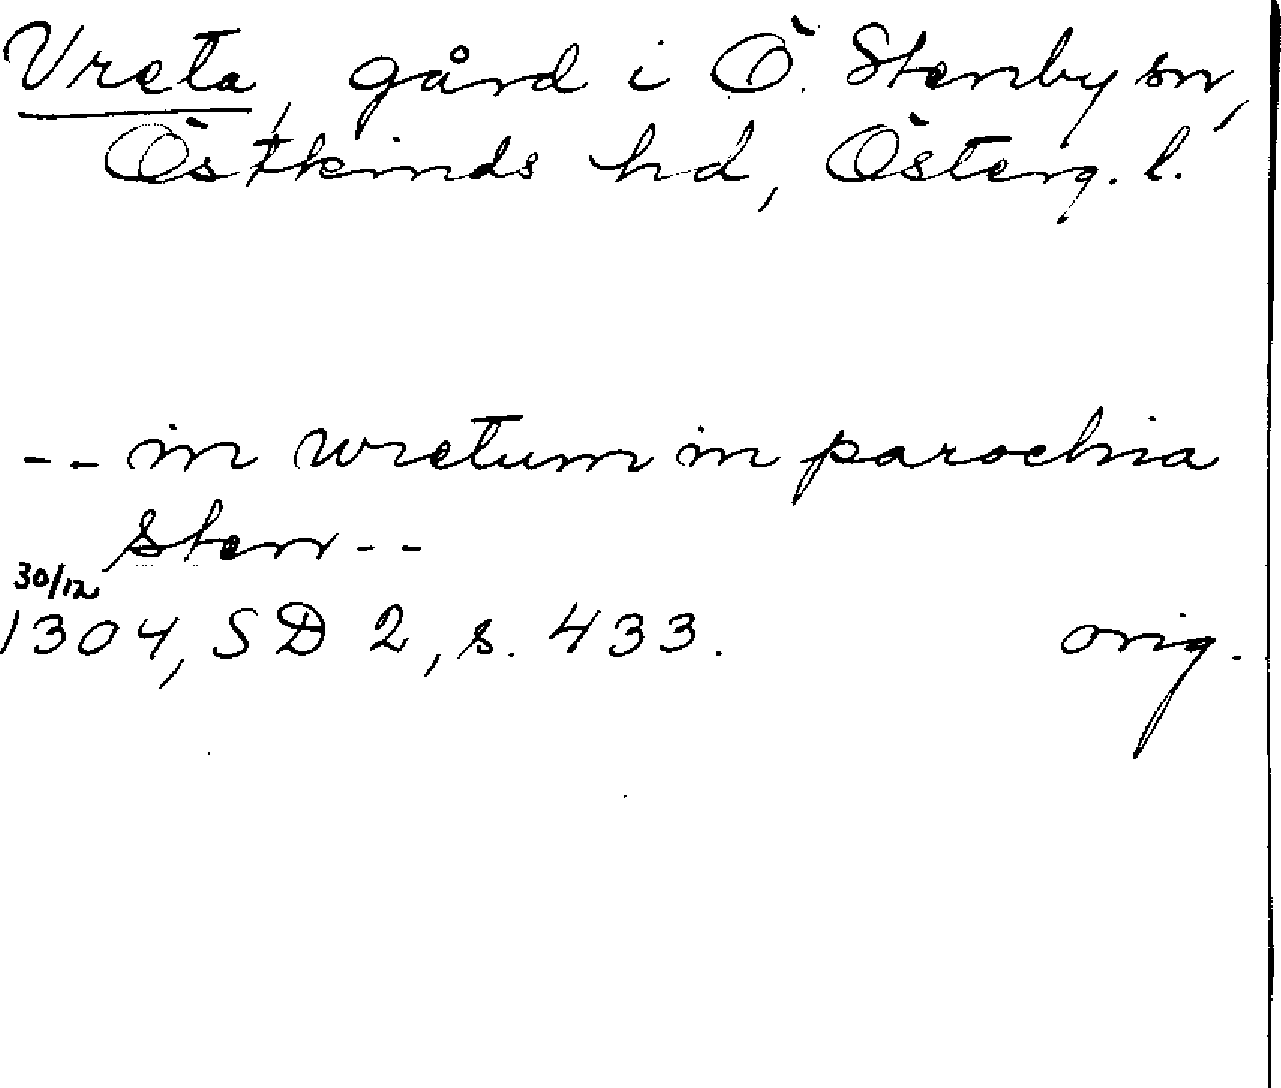 Vreta, gård i Ö. Stenby sn,
Östkinds hd, Österg. l.
-- in wretum in parochia
sten --
30/12
1304, SD 2, s. 433. orig.